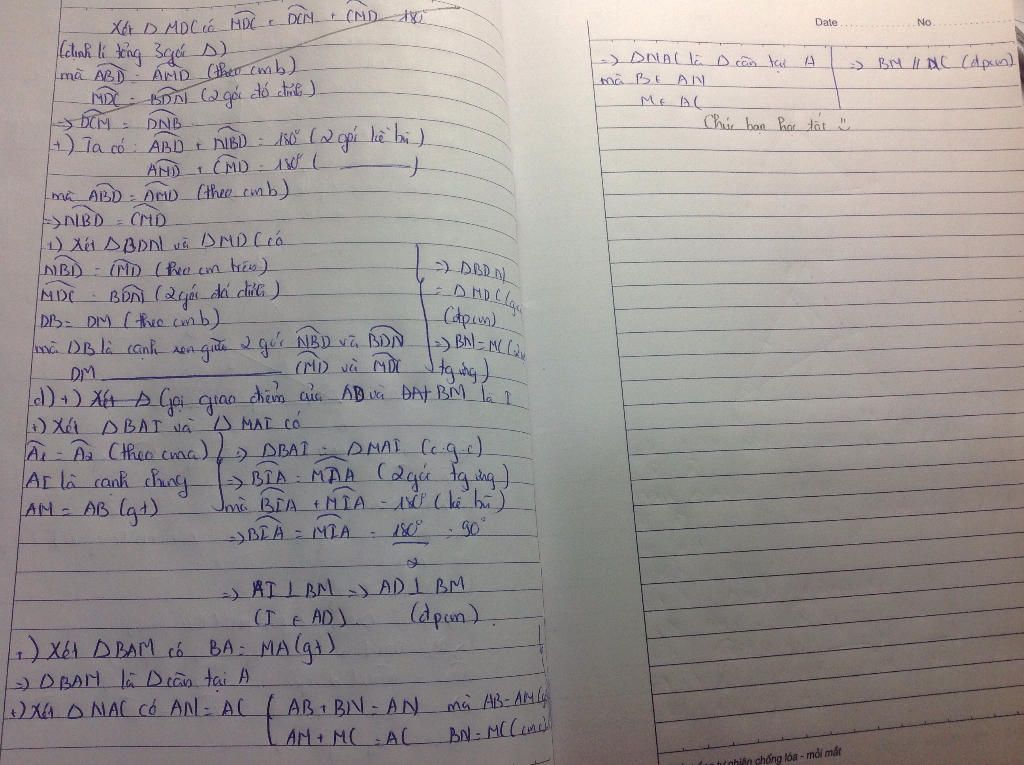 Xét Δ MDC có MDC + DCM + CMD = 180
(định lí tổng 3 góc Δ)
mà ABD = AMD (theo cmb)
MDC = BDN (2 góc đđ đỉnh)
=> DCM = DNB
+) Ta có: ABD + NBD = 180° (2 góc kề bù)
AMD + CMD = 180° (
mà ABD = AMD (theo cmb)
=> NBD = CMD
+) Xét ΔBDN và ΔMDC có
NBD = CMD (theo cm trên)
MDC = BDN (2 góc đđ đỉnh)
DB = DM (theo cmb)
mà DB là cạnh xen giữa 2 góc NBD và BDN
DM CMD và MDC
=> ΔBDN
= ΔMDC (g
(đpcm)
=> BN = MC (2
tg ứng)
d) +) Xét Δ Gọi giao điểm của AD và BM là I
+) Xét ΔBAI và ΔMAI có
A1 = A2 (theo cma)
AI là cạnh chung
AM = AB (gt)
=> ΔBAI = ΔMAI (c.g.c)
=> BIA = MIA (2 góc tg ứng)
mà BIA + MIA = 180° (kề bù)
=> BIA = MIA = 180° = 90°
2
=> AI ⊥ BM => AD ⊥ BM
(I ∈ AD) (đpcm).
+) Xét ΔBAM có BA = MA (gt)
=> ΔBAM là Δ cân tại A
+) Xét ΔNAC có AN = AC { AB + BN = AN mà AB = AM (g
AM + MC = AC BN = MC (cmc)
Date No
=> ΔNAC là Δ cân tại A
mà B ∈ AN
M ∈ AC
=> BM // NC (đpcm)
Chúc bạn học tốt
nhiên chống lóa - mỏi mắt